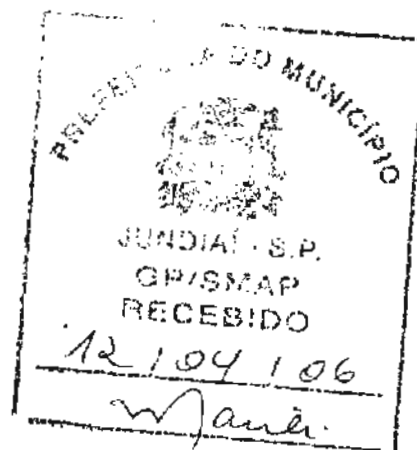 PREFEITURA DO MUNICÍPIO
JUNDIAÍ - S.P.
GP/SMAP
RECEBIDO
12 / 04 / 06